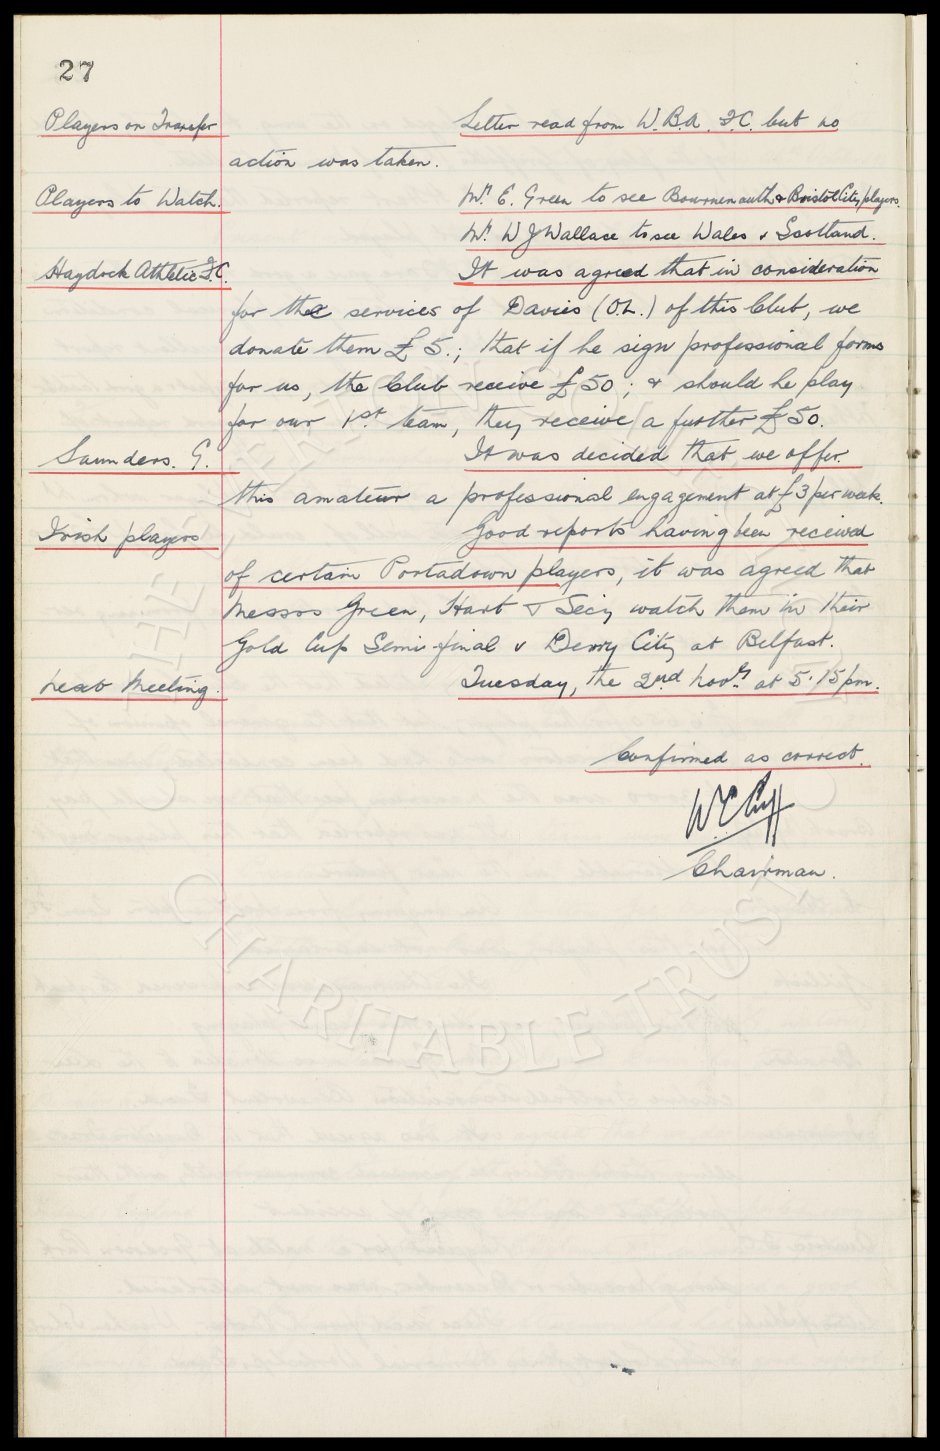 27
Players on Transfer Letter read from W.B.A. F.C. but no
action was taken.
Players to Watch. Mr. E. Green to see Bournemouth & Bristol City players.
Mr. W J Wallace to see Wales v Scotland.
Haydock Athletic F.C. It was agreed that in consideration
for the services of Davies (O.L.) of this Club, we
donate them £5.; that if he sign professional forms
for us, the Club receive £50; & should he play
for our 1st team, they receive a further £50.
Saunders. G. It was decided that we offer
this amateur a professional engagement at £3 per week.
Irish players Good reports having been received
of certain Portadown players, it was agreed that
Messrs Green, Hart & Secy watch them in their
Gold Cup Semi-final v Derry City at Belfast.
Next Meeting. Tuesday, the 2nd Novr. at 5.15pm.
Confirmed as correct.
W C Cuff
Chairman.
CHARITABLE TRUST